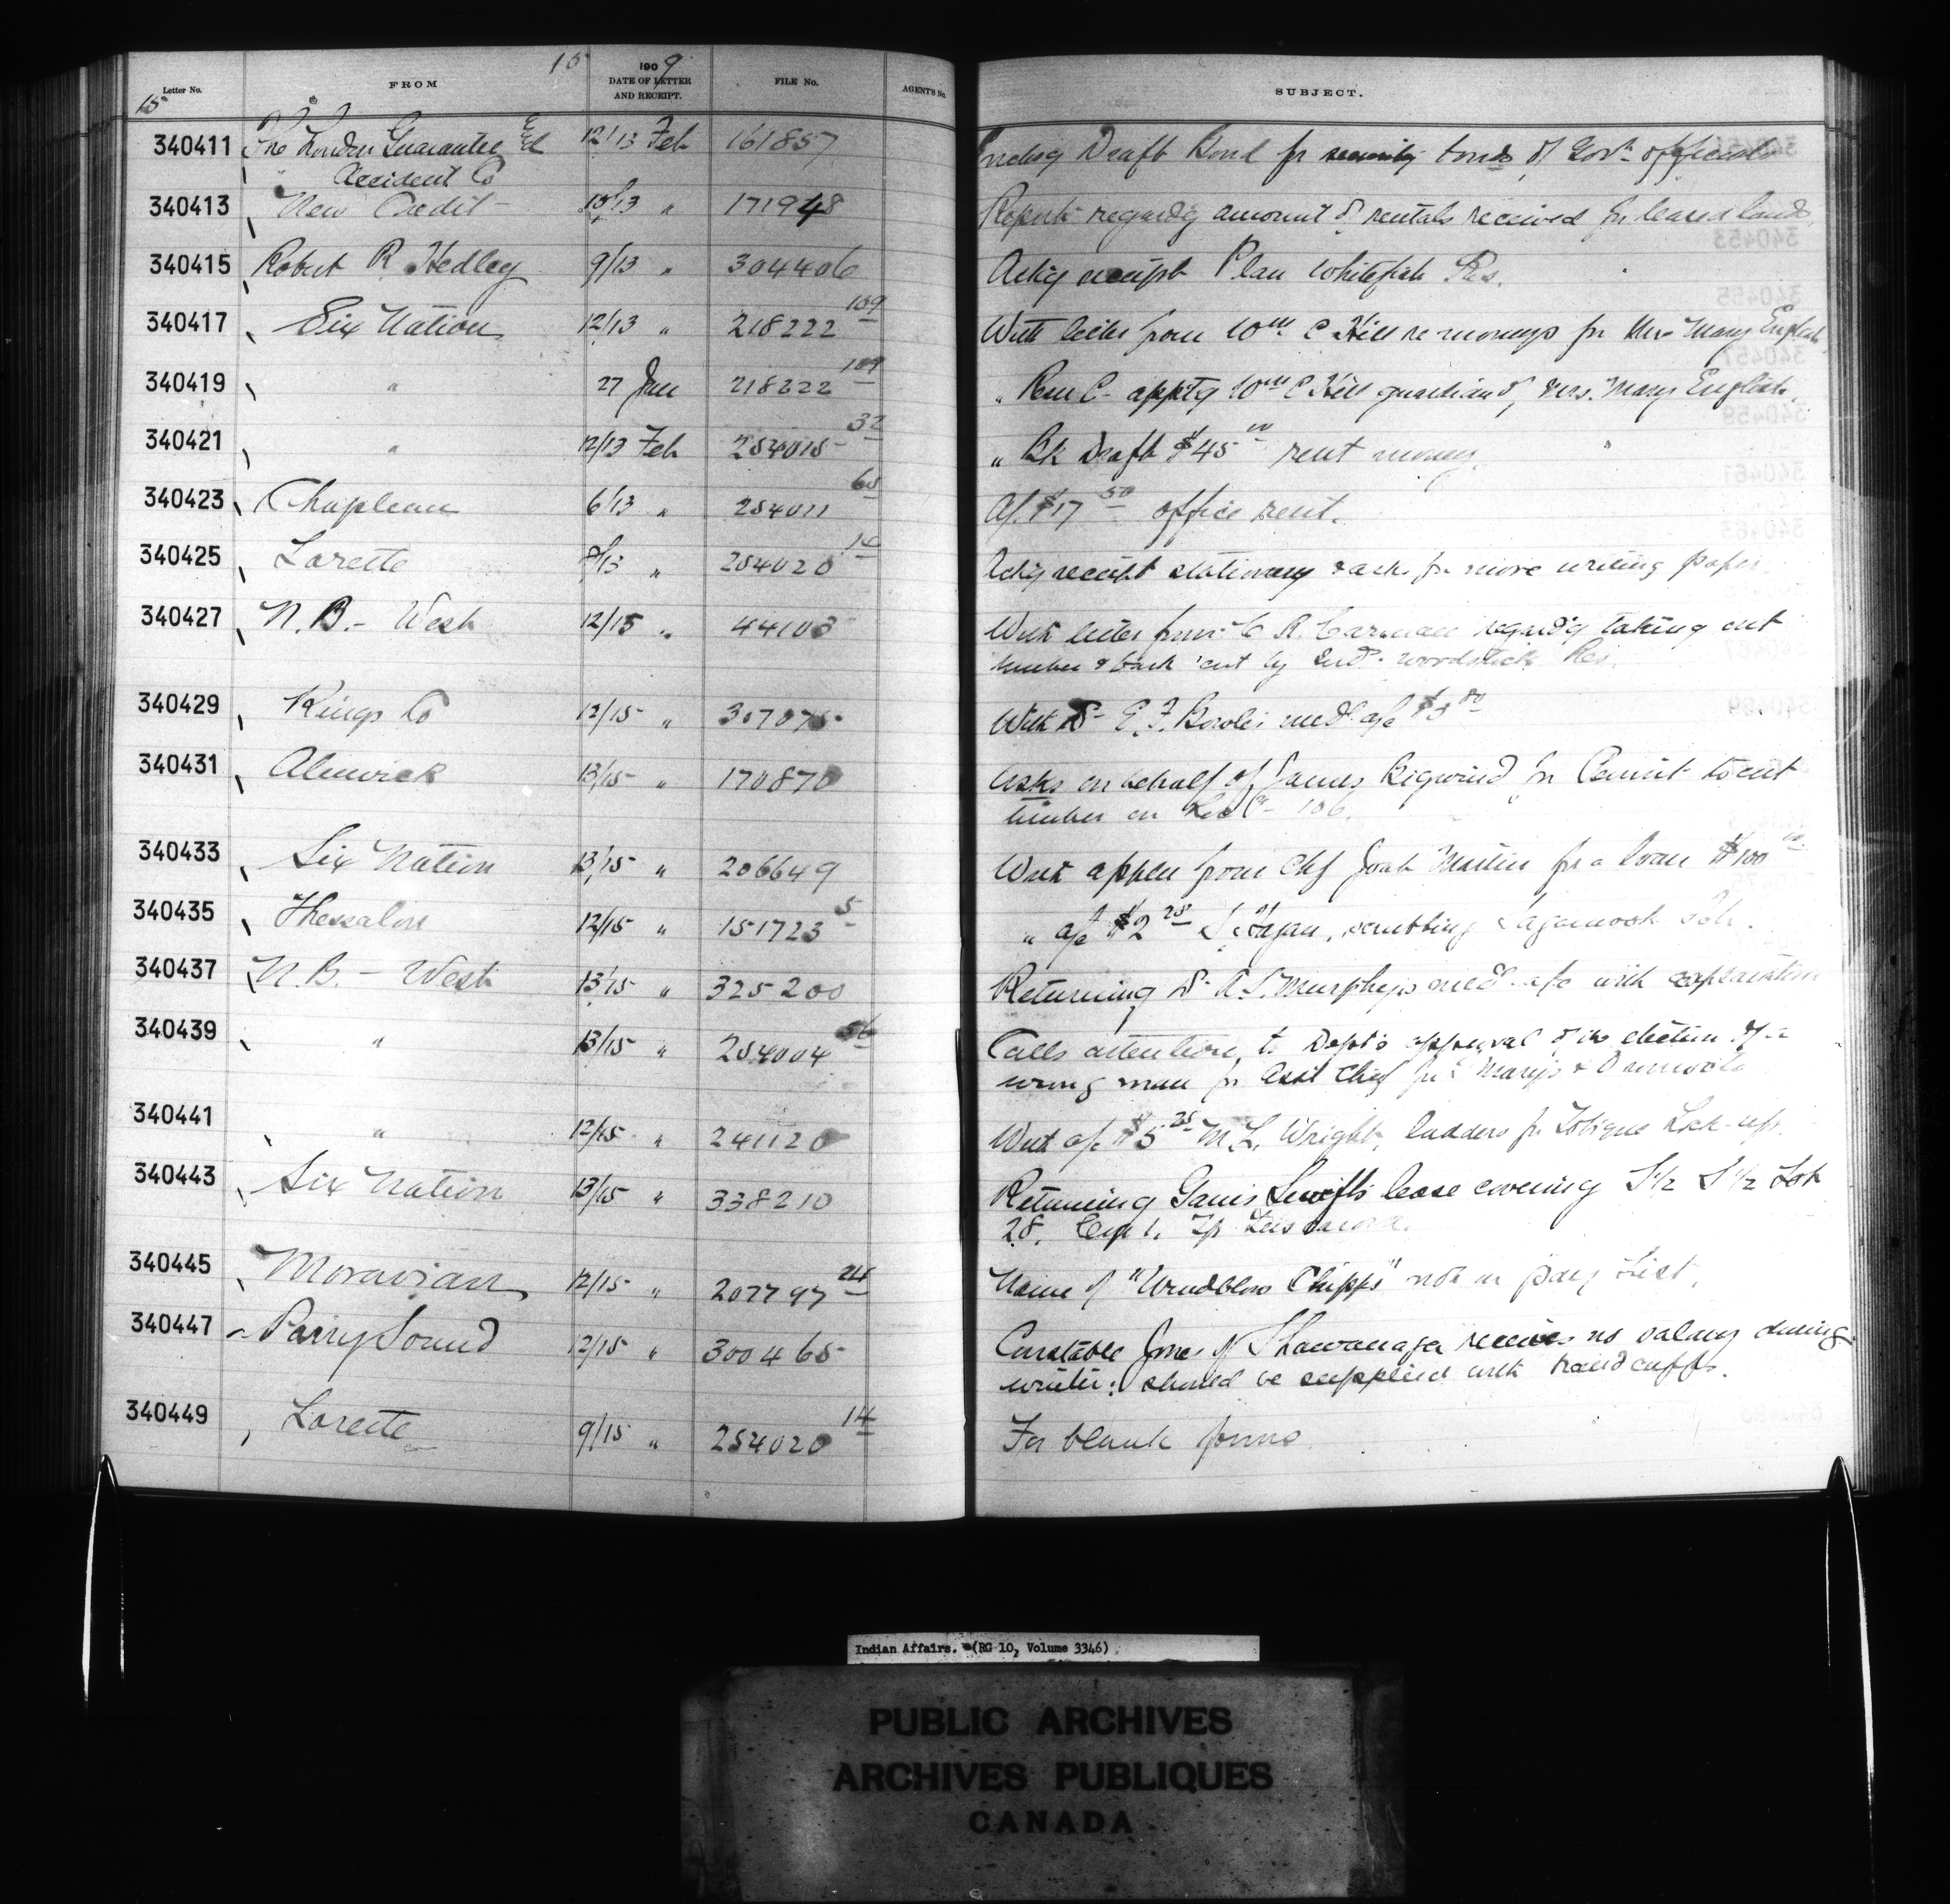 15 1909
Letter No. FROM DATE OF LETTER AND RECEIPT. FILE No. AGENT'S No. SUBJECT.
15
340411 The London Guarantee & Accident Co 12/13 Feb 161857 Enclosg Draft Bond for security bonds of Govt officials
340413 New Credit 10/13 " 171948 Reports regardg amount of rentals received for leased lands
340415 Robert R Hedley 9/13 " 304406 Ackg receipt Plan Whitefish Res.
340417 Six Nation 12/13 " 218222 109 With letter from Wm C Hill re moneys for Mrs Mary English
340419 " 27 Jan 218222 109 " Rem C- apptg Wm C Hill guardian of Mrs. Mary English.
340421 " 12/13 Feb 254015 32 " Bk Draft $45 00 rent money
340423 Chapleau 6/13 " 254011 65 A/c $17 50 office rent.
340425 Lorette 8/13 " 254020 14 Ackg receipt stationery & asks for more writing paper
340427 N.B. - West 12/15 " 44103 With letter from C R. regardg taking out
timber & bark cut by Inds. Woodstock Res.
340429 Kings Co 12/15 " 307075 With Dr E. F. Bowles med a/c $3
340431 Alnwick 13/15 " 170870 Asks on behalf of James Bigwind for Permit to cut
timber on 106.
340433 Six Nation 13/15 " 206649 With appln from Chf Josh Martin for a loan $100 00
340435 Thessalon 12/15 " 151723 5 " a/c $2 25 Hagan, scrubbing Sagamook Sch.
340437 N.B. - West 13/15 " 325200 Returning Dr Murphy's med a/c with explanation
340439 " 13/15 " 254004 56 Calls attention to Dept's approval of the election of a
wrong man for Asst Chief for St Mary's & Oromocto
340441 " 12/15 " 241120 With a/c $5 25 M L. Wright, ladders for Tobique Lock-up.
340443 Six Nation 13/15 " 338210 Returning lease covering S 1/2 S 1/2 Lot
28, Con 1, Tp Tuscarora.
340445 Moravian 12/15 " 207797 24 Name of "Chipps" not on pay list.
340447 Parry Sound 12/15 " 300465 Constable Jones of Shawanaga receives no salary during
winter: should be supplied with handcuffs.
340449 Lorette 9/15 " 254020 14 For blank forms
Indian Affairs. (RG 10, Volume 3346)
PUBLIC ARCHIVES
ARCHIVES PUBLIQUES
CANADA